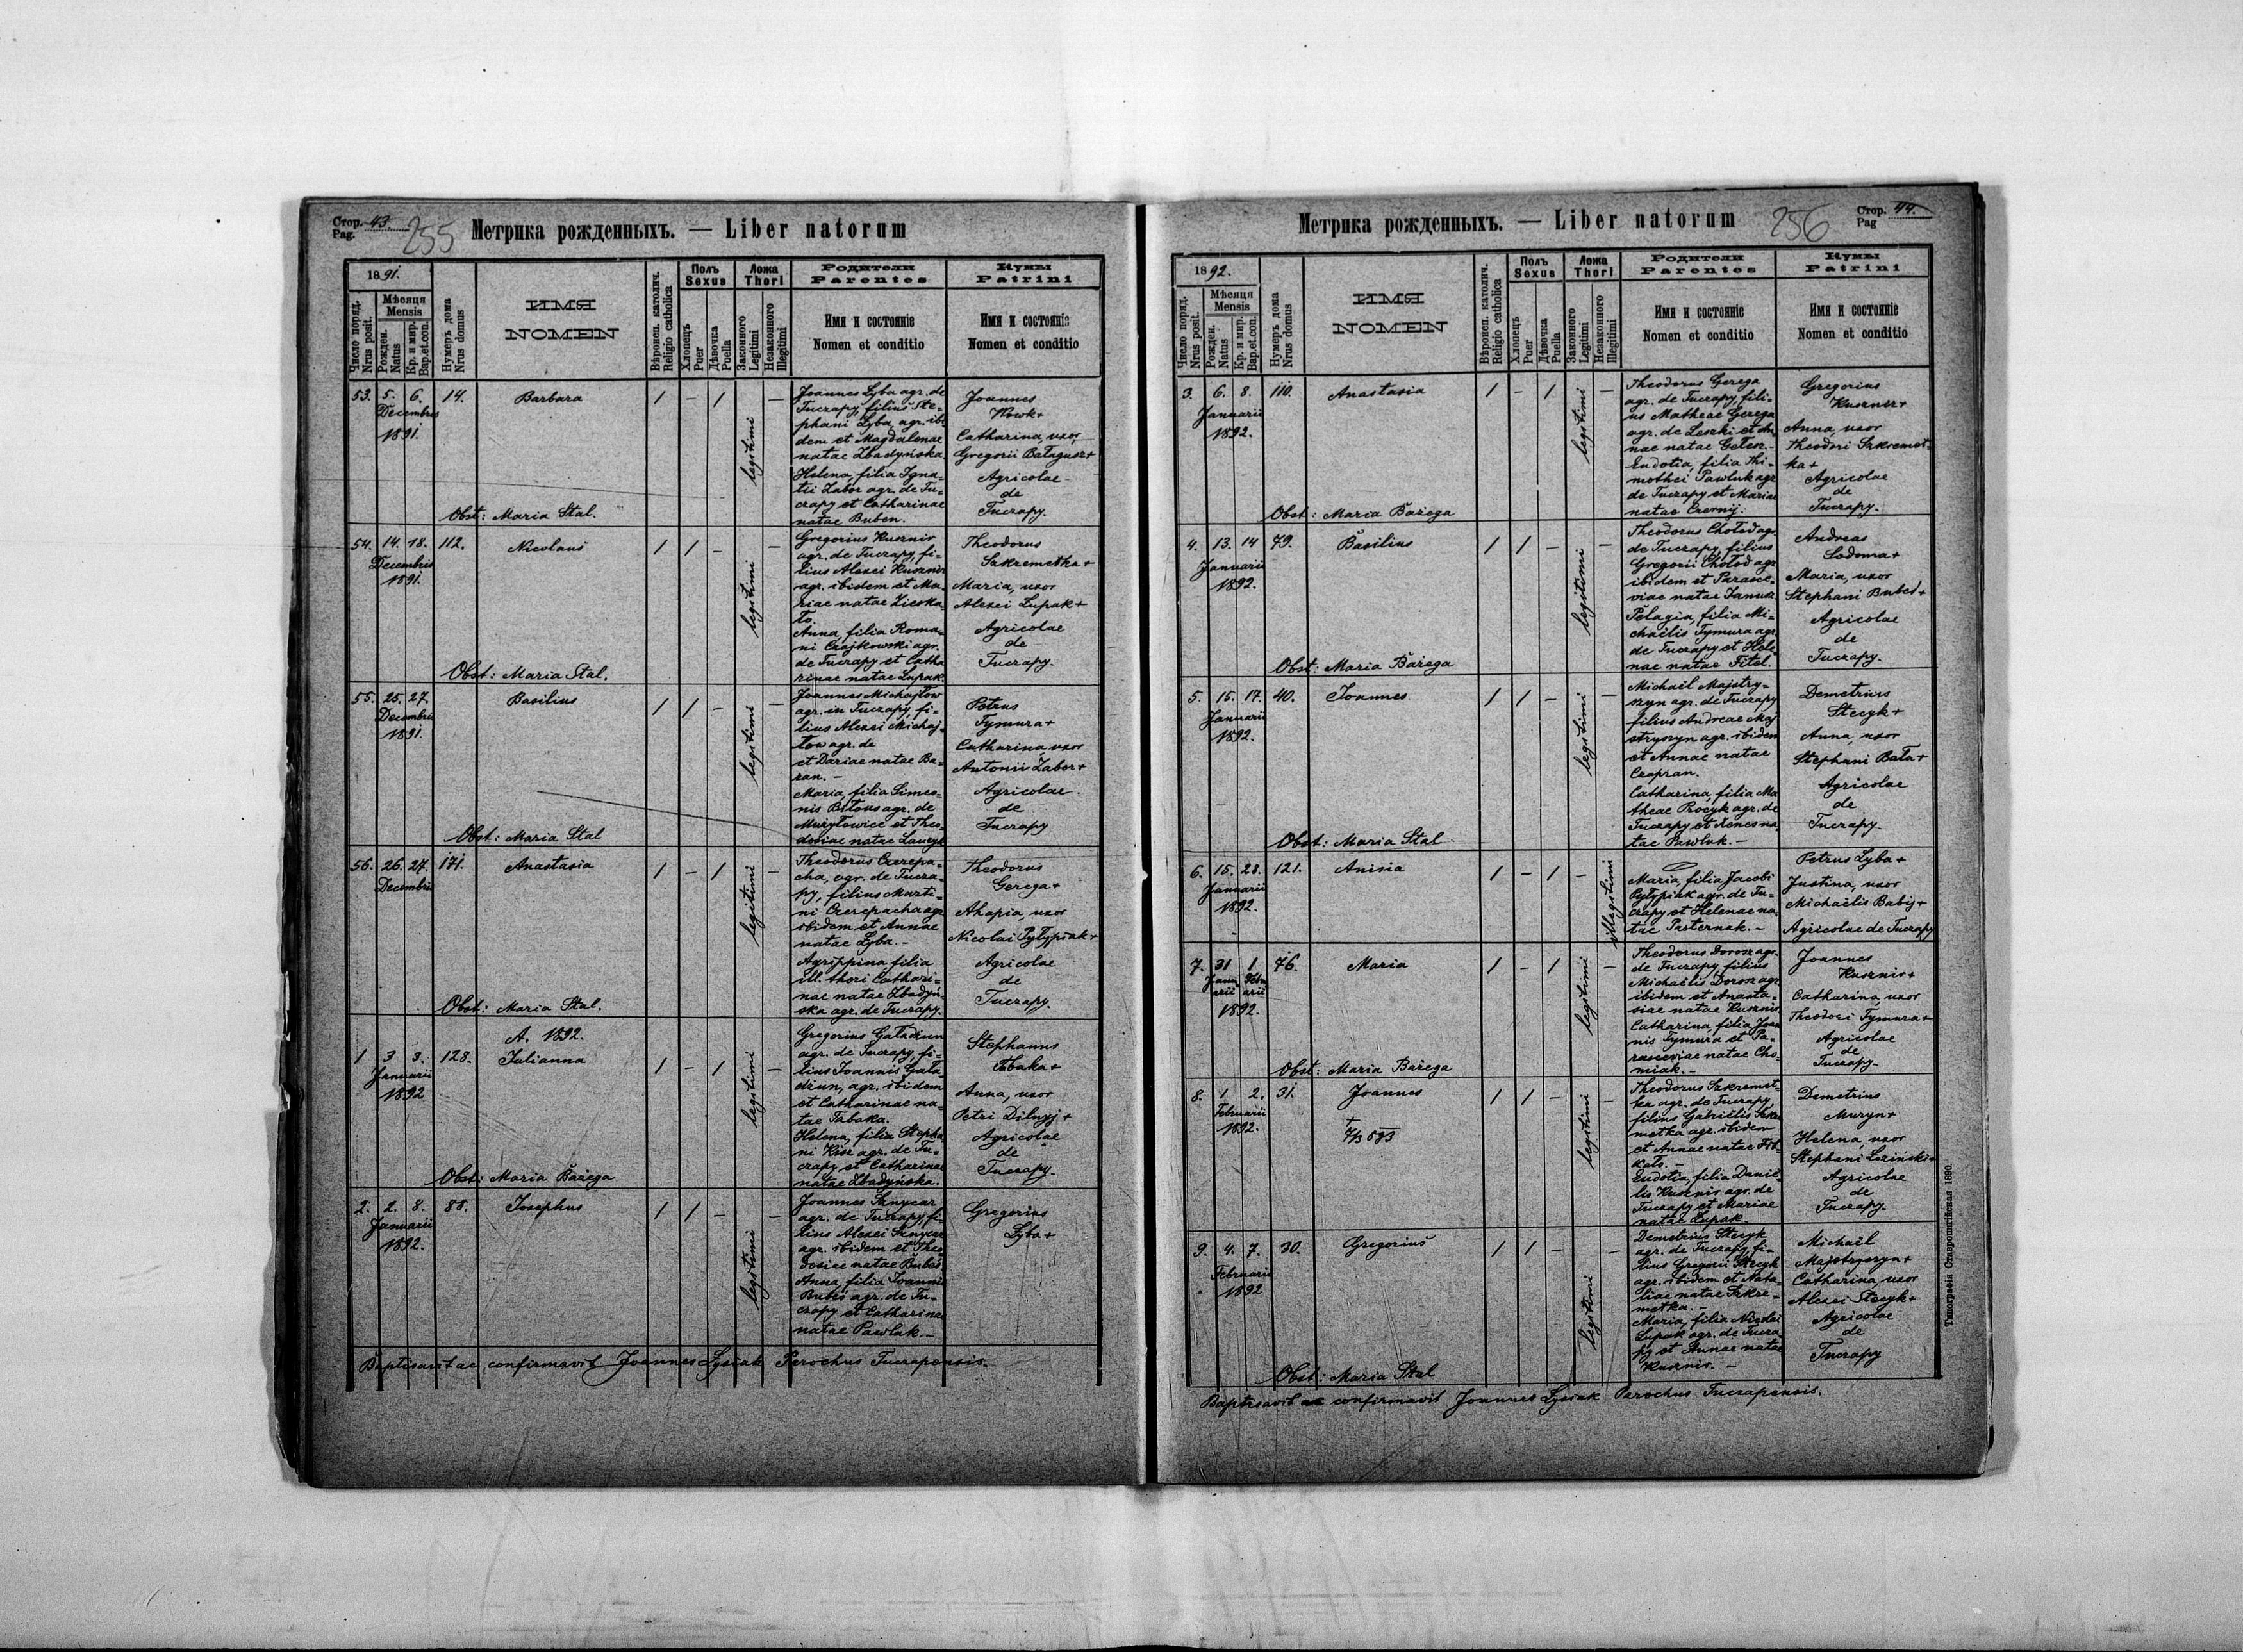 Стор. 43.
Pag.
255
Метрика рожденныхъ. — Liber natorum
1891.
Число поряд.
Nrus posit.
Мѣсяця
Mensis
Рожден.
Natus
Кр. и мир.
Bap.et.con.
Нумеръ дома
Nrus domus
ИМЯ
NOMEN
Вѣроисп. католич.
Religio catholica
Полъ
Sexus
Хлопецъ
Puer
Дѣвочка
Puella
Ложа
Thori
Законного
Legitimi
Незаконного
Illegitimi
Родители
Parentes
Имя и состояніе
Nomen et conditio
Кумы
Patrini
Имя и состояніе
Nomen et conditio
53. 5. 6. 14. Barbara / - / legitimi -
Decembris
1891.
Joannes Lyba agr. de
Tuczapy, filius Ste-
phani Lyba, agr. ibi
dem et Magdalenae
natae Zbadyńska.
Helena, filia Igna-
tii Zabor agr. de Tu-
czapy et Catharinae
natae Buben.
Joannes
Wowk+
Catharina, uxor
Gregorii Bałagusz+
Agricolae
de
Tuczapy.
Obst: Maria Stal.
54. 14. 18. 112. Nicolaus / / - legitimi -
Decembris
1891.
Gregorius Kusznir
agr. de Tuczapy, fi-
lius Alexei Kusznir
agr. ibidem et Ma-
riae natae Zieska-
to.
Anna, filia Roma-
ni Czajkowski agr.
de Tuczapy et Catha
rinae natae Łupak.
Theodorus
Szkremetka+
Maria, uxor
Alexei Łupak+
Agricolae
de
Tuczapy.
Obst: Maria Stal.
55. 25. 27. Basilius / / - legitimi -
Decembris
1891.
Joannes Michajłow
agr. in Tuczapy, fi-
lius Alexei Michaj-
łow agr. de
et Dariae natae Ba-
ran. -
Maria, filia Simeo-
nis Biłous agr. de
Mużyłowice et Theo-
dosiae natae
Petrus
Tymura+
Catharina uxor
Antonii Zabor+
Agricolae
de
Tuczapy
Obst: Maria Stal
56. 26. 27. 171. Anastasia / - / legitimi -
Decembris
Theodorus Czerepa-
cha, agr. de Tucza-
py, filius Marti-
ni Czerepacha agr.
ibidem et Annae
natae Lyba. -
Agrippina filia
ill. thori Cathari-
nae natae Zbadyń-
ska agr. de Tuczapy.
Theodorus
Gerega+
Ahapia, uxor
Nicolai Pyłypiak+
Agricolae
de
Tuczapy.
Obst: Maria Stal.
A. 1892.
1 3 3. 128. Julianna / - / legitimi -
Januarii
1892
Gregorius Gaładżun
agr. de Tuczapy, fi-
lius Joannis Gała-
dżun, agr. ibidem
et Catharinae na-
tae Tabaka.
Helena, filia Stepha
ni Kisz agr. de Tu-
czapy et Catharinae
natae Zbadyńska.
Stephanus
Tabaka+
Anna, uxor
Petri Dilnyj+
Agricolae
de
Tuczapy.
Obst: Maria Bażega
2. 2. 8. 88. Josephus / / - legitimi -
Januarii
1892.
Joannes Sznycar
agr. de Tuczapy, fi-
lius Alexei Sznycar
agr. ibidem et Theo
dosiae natae Bubeś.
Anna, filia Joannis
Bubeś agr. de Tu-
czapy et Catharinae
natae Pawluk. -
Gregorius
Lyba+
Baptisavit ac confirmavit Joannes Łysiak Parochus Tuczapensis.
Метрика рожденныхъ. — Liber natorum
256
Стор. 44.
Pag
1892.
Число поряд.
Nrus posit.
Мѣсяця
Mensis
Рожден.
Natus
Кр. и мир.
Bap.et.con.
Нумеръ дома
Nrus domus
ИМЯ
NOMEN
Вѣроисп. католич.
Religio catholica
Полъ
Sexus
Хлопецъ
Puer
Дѣвочка
Puella
Ложа
Thori
Законного
Legitimi
Незаконного
Illegitimi
Родители
Parentes
Имя и состояніе
Nomen et conditio
Кумы
Patrini
Имя и состояніе
Nomen et conditio
3. 6. 8. 110. Anastasia / - / legitimi -
Januarii
1892.
Theodorus Gerega
agr. de Tuczapy, fili-
us Matheae Gerega
agr. de Leszki et An
nae natae Gelesz.
Eudotia, filia Thi-
mothei Pawluk agr.
de Tuczapy et Mariae
natae Czernij.
Gregorius
Kusznir+
Anna, uxor
Theodori Szkremet-
ka+
Agricolae
de
Tuczapy.
Obst: Maria Bażega
4. 13. 14 79. Basilius / / - legitimi -
Januarii
1892.
Theodorus Chołod agr.
de Tuczapy, filius
Gregorii Chołod agr
ibidem et Parasce-
viae natae Janusz.
Pelagia, filia Mi-
chaëlis Tymura agr.
de Tuczapy et Hele-
nae natae Fitel.
Andreas
Łodoma+
Maria, uxor
Stephani Bubeś+
Agricolae
de
Tuczapy.
Obst: Maria Bażega
5. 15. 17. 40. Joannes / / - legitimi -
Januarii
1892.
Michaël Majstry-
szyn agr. de Tuczapy
filius Andreae Maj
stryszyn agr. ibidem
et Annae natae
Czapran.
Catharina, filia Ma
theae Procyk agr. de
Tuczapy et Xenes na
tae Pawluk. -
Demetrius
Stecyk+
Anna, uxor
Stephani Bała+
Agricolae
de
Tuczapy.
Obst: Maria Stal
6. 15. 28. 121. Anisia / - / - illegitimi
Januarii
1892.
Maria, filia Jacobi
Pyłypiak agr. de Tu-
czapy et Helenae na
tae Pasternak. -
Petrus Lyba+
Justina, uxor
Michaëlis Babij+
Agricolae de Tuczapy
7. 31 1. 76. Maria / - / legitimi -
Janu Febru
arii arii
1892.
Theodorus Dorosz agr.
de Tuczapy, filius
Michaëlis Dorosz agr.
ibidem et Anasta-
siae natae Kusznir
Catharina, filia Joan
nis Tymura et Pa-
rasceviae natae Cho-
miak. -
Joannes
Kusznir+
Catharina, uxor
Theodori Tymura+
Agricolae
de
Tuczapy.
Obst: Maria Bażega
8. 1 2. 31. Joannes / / - legitimi -
Februarii
1892.
Theodorus Szkremet-
ka agr. de Tuczapy,
filius Gabriëlis Szkre
metka agr. ibidem
et Annae natae
Eudotia, filia Danië-
lis Kusznir agr. de
Tuczapy et Mariae
natae Łupak.
Demetrius
Muryn+
Helena, uxor
Stephani Łoziński+
Agricolae
de
Tuczapy.
9. 4. 7. 30. Gregorius / / - legitimi -
Februarii
1892
Demetrius Stecyk
agr. de Tuczapy, fi-
lius Gregorii Stecyk
agr. ibidem et Nata-
liae natae Szkre-
metka. -
Maria, filia Nicolai
Łupak agr. de Tucza
py et Annae natae
Kusznir. -
Michaël
Majstryszyn+
Catharina, uxor
Alexei Stecyk+
Agricolae
de
Tuczapy
Obst: Maria Stal
Baptisavit ac confirmavit Joannes Łysiak Parochus Tuczapensis.
Типографія Ставропигійская 1890.